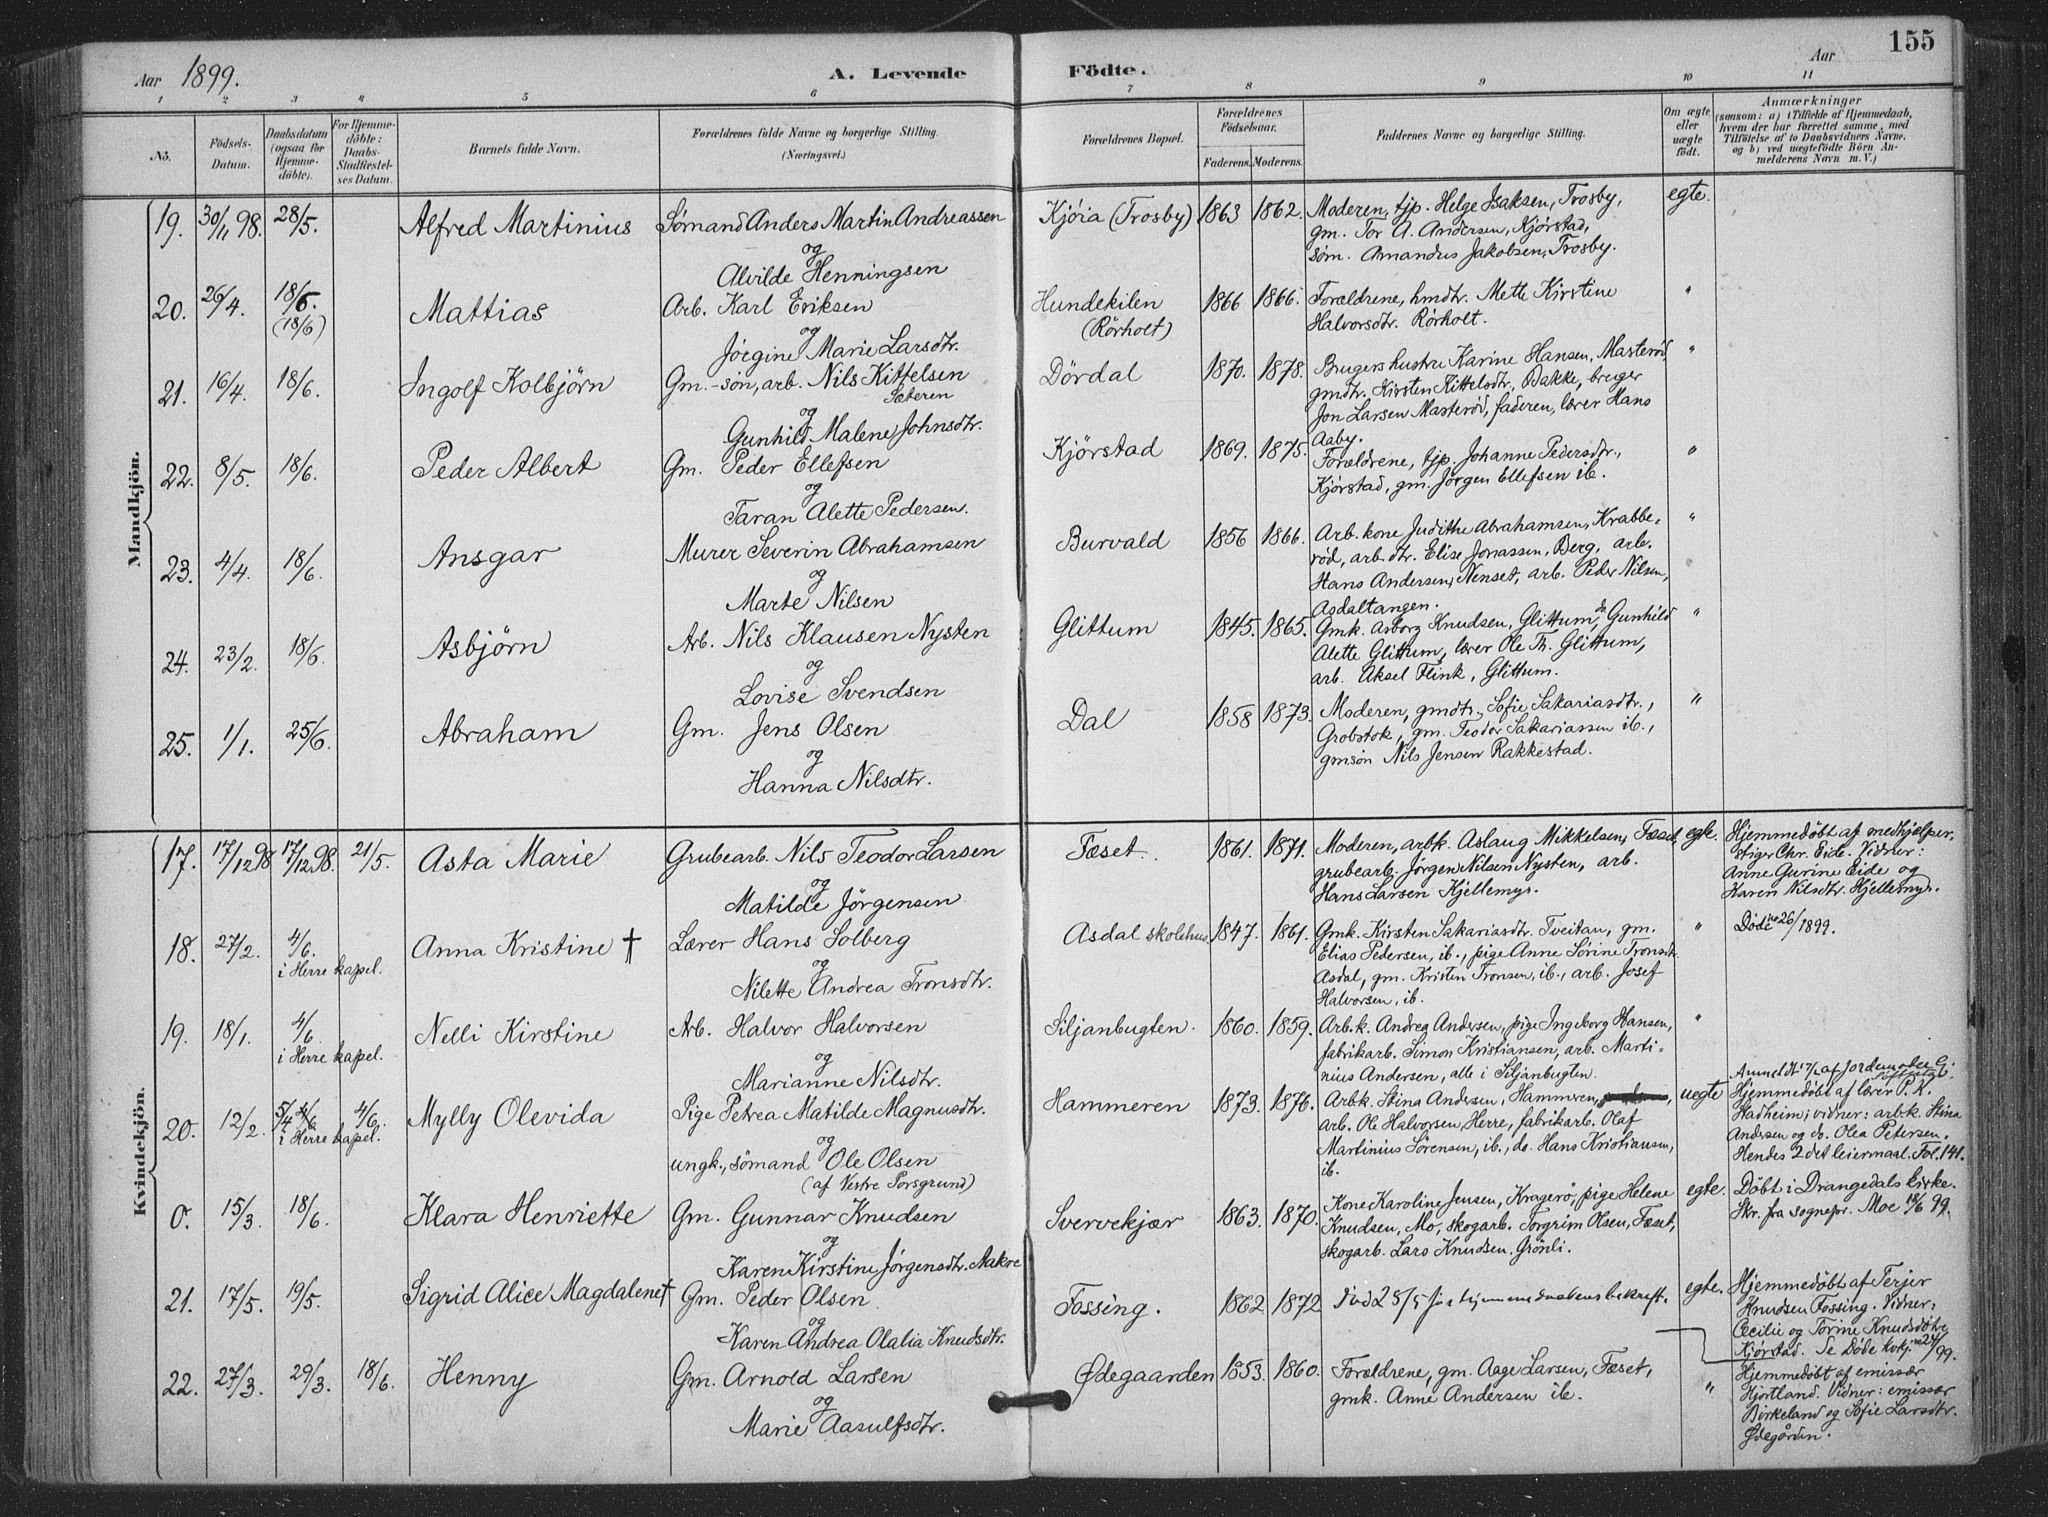 155
Aar 1899. A. Levende Födte. Aar
1 2 3 4 5 6 7 8 9 10 11
No. Födsels-Datum. Daabsdatum (ogsaa for Hjemmedöbte). For Hjemmedöbte: Daabs-Stadfæstelses Datum. Barnets fulde Navn. Forældrenes fulde Navne og borgerlige Stilling. (Næringsvei.) Forældrenes Bopæl. Forældrenes Födselsaar. Faderens. Moderens. Faddernes Navne og borgerlige Stilling. Om ægte eller uægte født. Anmærkninger (saasom: a) i Tilfælde af Hjemmedaab, hvem der har forrettet samme, med Tilföielse af to Daabsvidners Navne, og b) ved uægtefödte Börn Anmelderens Navn m. V.)
Mandkjön.
19. 30/11 98. 28/5. Alfred Martinius Sømand Anders Martin Andreassen Kjöia (Trosby) 1863 1862. Moderen, tjp. Helge Isaksen, Trosby, egte.
og gm. Tor A. Andersen, Kjörstad,
Alvilde Henningsen søm. Amandus Jakobsen, Trosby.
20. 26/4. 18/6. (18/6) Mattias Arb. Karl Eriksen Hundekilen 1866 1866. Forældrene, hmdtr. Mette Kirstine "
og (Rörholt) Halvorsdtr. Rörholt.
Jörgine Marie Larsdtr.
21. 16/4. 18/6. Ingolf Kolbjörn Gm.-søn, arb. Nils Kittelsen Dördal 1870. 1878. Brugershustru Karine Hansen, Masteröd "
Sæteren gmdtr. Kirsten Kittelsdtr, Bakke, bruger
og Jon Larsen Masteröd, faderen, lærer Hans
Gunhild Malene Johnsdtr. Aaby.
22. 8/5. 18/6. Peder Albert Gm. Peder Ellefsen Kjörstad 1869. 1875. Forældrene, tjp. Johanne Pedersdtr., "
og Kjörstad, gm. Jörgen Ellefsen ib.
Taran Alette Pedersen.
23. 4/4. 18/6. Ansgar Murer Severin Abrahamsen Burvald 1856 1866. Arb. kone Judithe Abrahamsen, Krabbe- "
og röd, arb. dtr. Elise Jonassen, Berg, arb.
Marte Nilsen Hans Andersen, Nenset, arb. Peder Nilsen,
Asdaltangen.
24. 23/2. 18/6. Asbjörn Arb. Nils Klausen Nysten Glittum 1845. 1865. Gmk. Asborg Knudsen, Glittum, do Gunhild "
og Alette Glittum, lærer Ole Th. Glittum,
Lovise Svendsen arb. Aksel Flink, Glittum.
25. 1/1. 25/6. Abraham Gm. Jens Olsen Dal 1858 1873. Moderen, gmdtr. Sofie Sakariasdtr., "
og Grobstok, gm. Teodor Sakariassen ib.,
Hanna Nilsdtr. gmsön Nils Jensen Rakkestad.
Kvindekjön.
17. 17/12 98 17/12 98. 21/5. Asta Marie Grubearb. Nils Teodor Larsen Fæset. 1861. 1871. Moderen, arbk. Aslaug Mikkelsen, Fæset, egte. Hjemmedöbt af medhjælper,
og grubearb. Jörgen Nilsen Nysten, arb. stiger Chr. Eide. Vidner:
Matilde Jörgensen Hans Larsen Kjellemyr. Anne Gurine Eide og
Karen Nilsdtr. Kjellemyr.
18. 27/2. 4/6. i Herre kapel. Anna Kristine † Lærer Hans Solberg Asdal skolehus 1847. 1861. Gmk. Kirsten Sakariasdtr. Tveitan, gm. " Döde 26/1899.
og Elias Pedersen, ib., pige Anne Sörine Tronsdtr.
Nilette Andrea Tronsdtr. Asdal, gm. Kristen Tronsen, ib., arb. Josef
Halvorsen, ib.
19. 18/1. 4/6. i Herre kapel. Nelli Kirstine Arb. Halvor Halvorsen Siljanbugten. 1860. 1859. Arb.k. Andrea Andersen, pige Ingeborg Hansen, "
og fabrikarb. Simon Kristiansen, arb. Marti-
Marianne Nilsdtr. nius Andersen, alle i Siljanbugten.
20. 12/2. 5/4 4/6 i Herre kapel. 4/6. Mylly Olevida Pige Petrea Matilde Magnusdtr. Hammeren 1873. 1876. Arbk. Stina Andersen, Hammeren, uegte Hjemmedöbt af lærer P. K.
og arb. Ole Halvorsen, Herre, fabrikarb. Olaf Stadheim; vidner: arbk. Stina
ungk., sömand Ole Olsen Martinius Sörensen, ib., do. Hans Kristiansen, Andersen og do. Olea Petersen.
(af Vestre Porsgrund) ib. Hendes 2det leiermaal. Fol. 141.
0. 15/3. 18/6. Klara Henriette Gm. Gunnar Knudsen Svervekjær 1863. 1870. Kone Karoline Jensen, Kragerö, pige Helene egte. Döbt i Drangedals kirke.
og Knudsen, Mo, skogarb. Torgrim Olsen, Fæset, Skr. fra sognepr. Moe 18/6 99.
Karen Kirstine Jörgensdtr. Aakre skogarb. Lars Knudsen. Grönli.
21. 17/5. 19/5. Sigrid Alice Magdalene † Gm. Peder Olsen Fossing. 1862. 1872 Död 28/5 før hjemmedaabens bekræft. egte. Hjemmedöbt af Terjer
og Knudsen Fossing. Vidner:
Karen Andrea Olalia Knudsdtr. Cecilie og Torine Knudsdötre
Kjörstad.
22. 27/3. 29/3. 18/6. Henny Gm. Arnold Larsen Ødegaarden 1853. 1860. Forældrene, gm. Aage Larsen, Fæset, " Hjemmedöbt af emissær
og gmk. Anne Andersen ib. Hjortland. Vidner: emissær
Marie Aasulfsdtr. Birkeland og Sofie Larsdtr.
Ødegården.